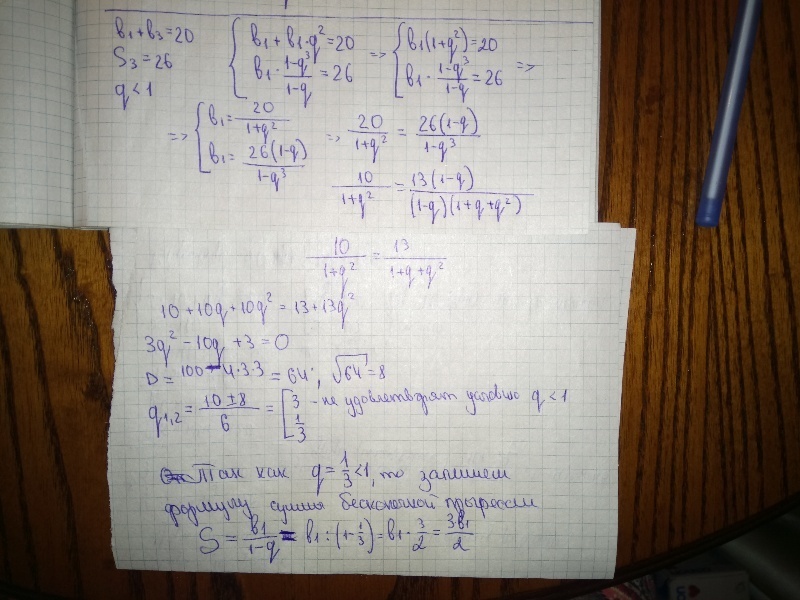 b₁+b₃=20
S₃=26
q<1
{ b₁+b₁·q²=20
b₁·(1-q³)/(1-q)=26
=> { b₁(1+q²)=20
b₁·(1-q³)/(1-q)=26 =>
=> { b₁=20/(1+q²)
b₁=26(1-q)/(1-q³)
=> 20/(1+q²)=26(1-q)/(1-q³)
10/(1+q²)=13(1-q)/((1-q)(1+q+q²))
10/(1+q²)=13/(1+q+q²)
10+10q+10q²=13+13q²
3q²-10q+3=0
D=100-4·3·3=64; √64=8
q₁,₂=(10±8)/6=[3 - не удовлетворят условию q<1
1/3
Так как q=1/3<1, то запишем
формулу суммы бесконечной прогрессии
S=b₁/(1-q)=b₁:(1-1/3)=b₁·3/2=3b₁/2